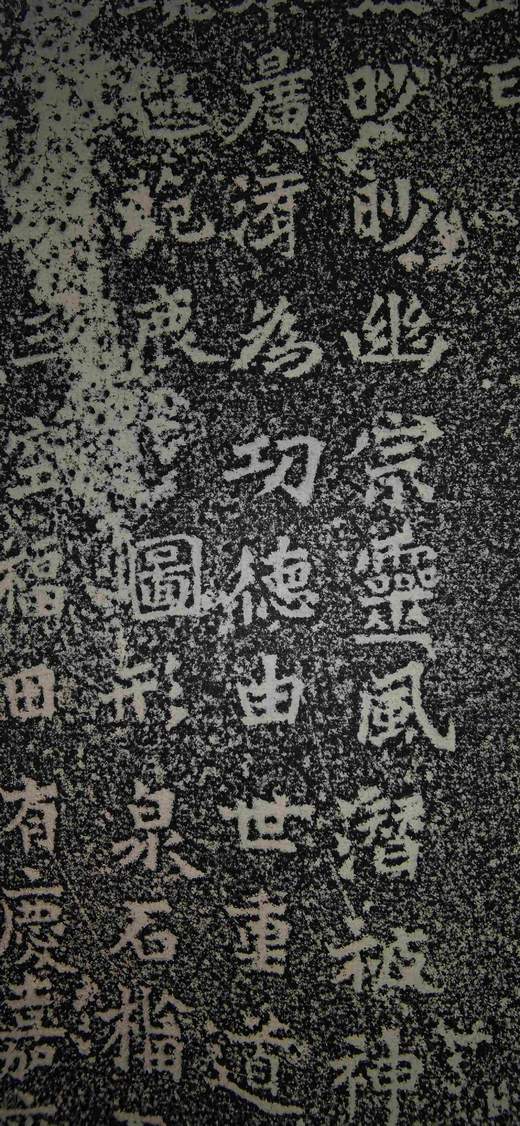 曰
眇眇幽宗靈風潛被神
廣濟為功德由世重道
圖形泉石
三空福田有慶嘉